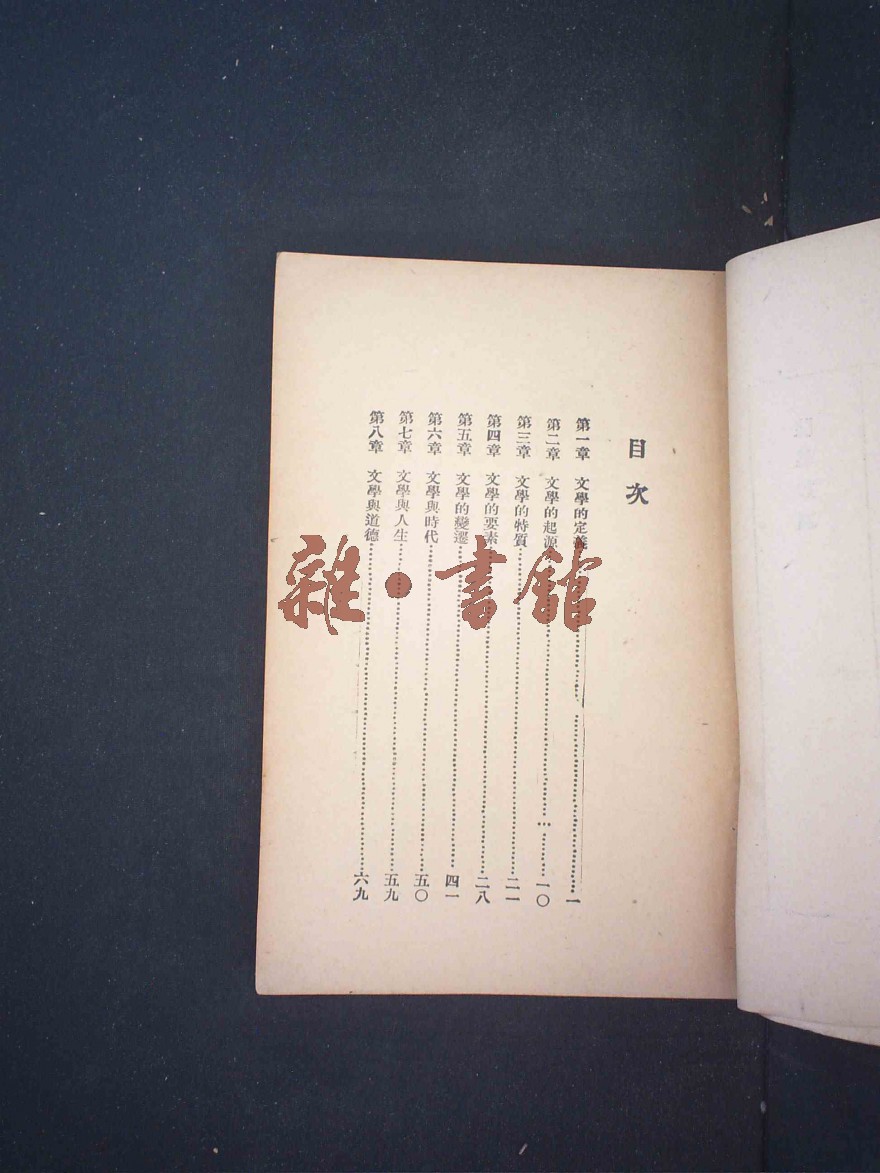 目次
第一章 文學的定義……一
第二章 文學的起源……一〇
第三章 文學的特質……二一
第四章 文學的要素……二八
第五章 文學的變遷……四一
第六章 文學與時代……五〇
第七章 文學與人生……五九
第八章 文學與道德……六九
雜·書館